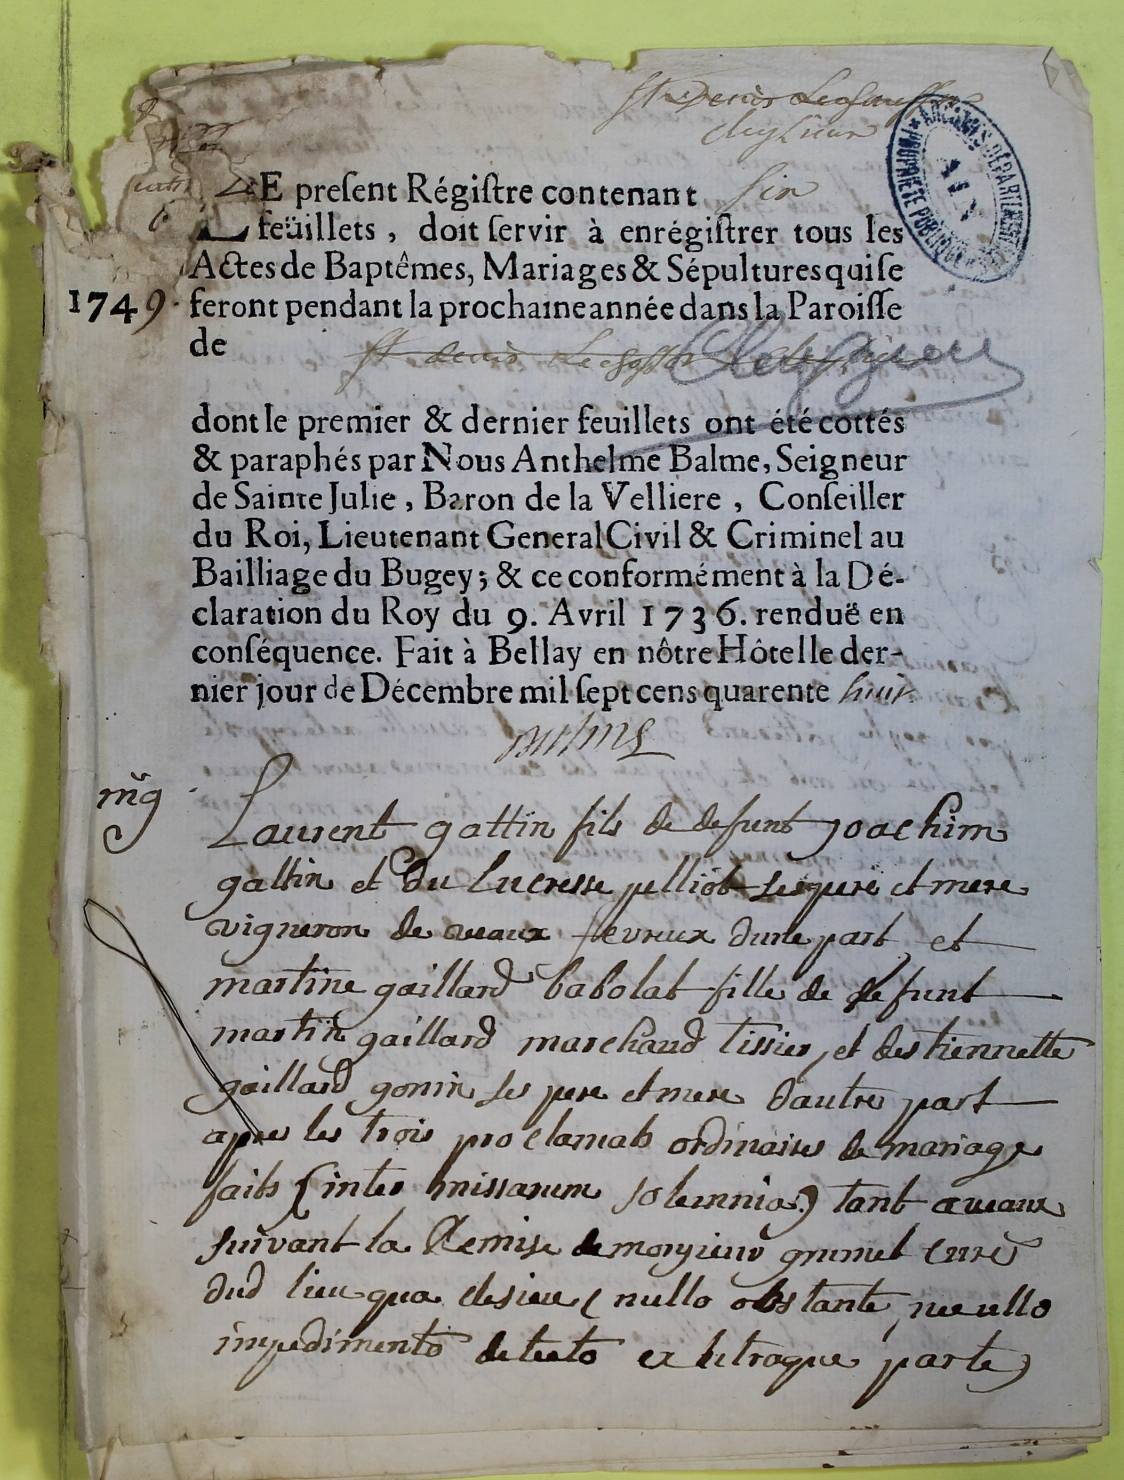 St Denis Le
cleyzieux
ARCHIVES DÉPARTEMENTALES
AIN
PROPRIÉTÉ PUBLIQUE
LE preſent Régiſtre contenant six
feüillets , doit ſervir à enrégiſtrer tous les
Actes de Baptêmes, Mariages & Sépultures qui ſe
1749. feront pendant la prochaine année dans la Paroiſſe
de St denis Le
dont le premier & dernier feuillets ont été cottés
& paraphés par Nous Anthelme Balme, Seigneur
de Sainte Julie , Baron de la Velliere , Conſeiller
du Roi, Lieutenant General Civil & Criminel au
Bailliage du Bugey ; & ce conformément à la Dé-
claration du Roy du 9. Avril 1736. renduë en
conſéquence. Fait à Bellay en nôtre Hôtel le der-
nier jour de Décembre mil ſept cens quarente huit
mg
Laurent gattin fils de defunt joachim
gattin et du Lucresse pelliot ses pere et mere
vigneron de veaux fevreux dune part et
martine gaillard babolat fille de defunt
martin gaillard marchand tissier, et destiennette
gaillard gonin ses pere et mere dautre part
apres les trois proclamats ordinaires de mariage
faits (inter missarum solemnia) tant a veaux
suivant la Remise de monsieur grumet curé
dud lieu qua (nullo obstante, nec ullo
impedimento detecto ex utraque parte)